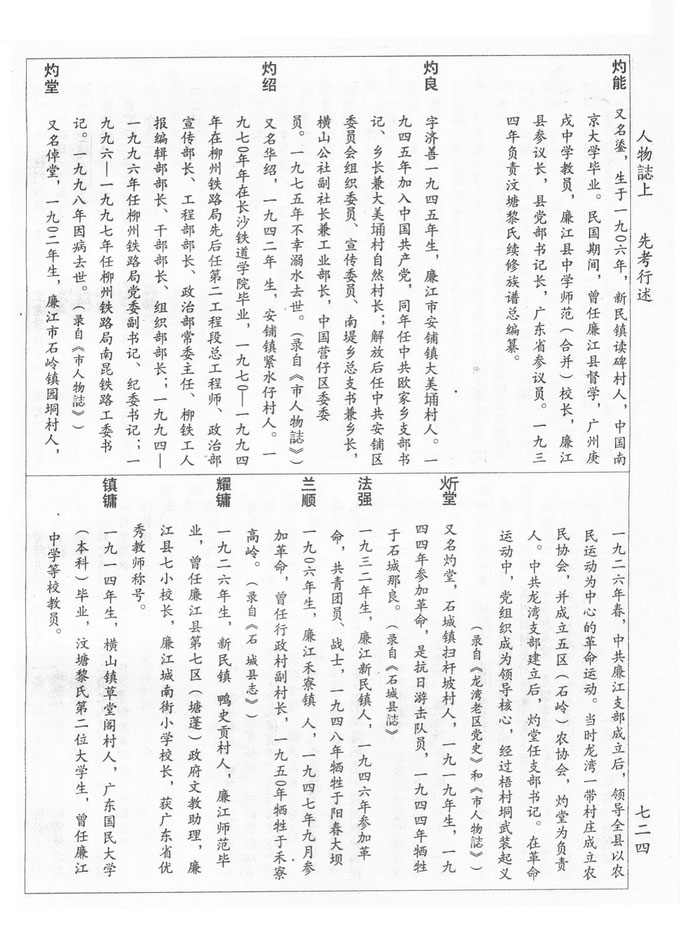 人物誌上　先考行述
七二四
灼能
又名鋈，生于一九０六年，新民镇读碑村人，中国南
京大学毕业。民国期间，曾任廉江县督学，广州庚
戍中学教员，廉江县中学师范（合并）校长，廉江
县参议长，县党部书记长，广东省参议员。一九三
四年负责汶塘黎氏续修族谱总编纂。
灼良
字济善一九四五年生，廉江市安铺镇大美埇村人。一
九四五年加入中国共产党，同年任中共欧家乡支部书
记、乡长兼大美埇村自然村长；解放后任中共安铺区
委员会组织委员、宣传委员、南堤乡总支书兼乡长，
横山公社副社长兼工业部长，中国营仔区委委
员。一九七五年不幸溺水去世。（录自《市人物誌》）
灼绍
又名华绍，一九四二年 生，安铺镇紧水仔村人。一
九七０年在长沙铁道学院毕业，一九七０—一九九四
年在柳州铁路局先后任第二工程段总工程师、政治部
宣传部长、工程部部长、政治部常委主任、柳铁工人
报编辑部部长、干部部长、组织部部长；一九九四—
一九九六年任柳州铁路局党委副书记、纪委书记；一
九九六—一九九七年任柳州铁路局南昆铁路工委书
记。一九九八年因病去世。（录自《市人物誌》）
灼堂
又名倬堂，一九０二年生，廉江市石岭镇园垌村人，
一九二六年春，中共廉江支部成立后，领导全县以农
民运动为中心的革命运动。当时龙湾一带村庄成立农
民协会，并成立五区（石岭）农协会，灼堂为负责
人。中共龙湾支部建立后，灼堂任支部书记。在革命
运动中，党组织成为领导核心，经过梧村垌武装起义
（录自《龙湾老区党史》和《市人物誌》）
炘堂
又名灼堂，石城镇扫杆坡村人，一九一九年生，一九
四四年参加革命，是抗日游击队员，一九四四年牺牲
于石城那良。（录自《石城县誌》
法强
一九三二年生，廉江新民镇人，一九四六年参加革
命，共青团员、战士，一九四八年牺牲于阳春大坝
兰顺
一九０六年生，廉江禾寮镇 人，一九四七年九月参
加革命，曾任行政村副村长，一九五０年牺牲于禾寮
高岭。（录自《石 城县志》）
耀镛
一九二六年生，新民镇 鸭史贡村人，廉江师范毕
业，曾任廉江县第七区（塘蓬）政府文教助理，廉
江县七小校长，廉江城南街小学校长，获广东省优
秀教师称号。
镇镛
一九一四年生，横山镇草堂阁村人，广东国民大学
（本科）毕业，汶塘黎氏第二位大学生，曾任廉江
中学等校教员。